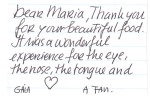 Dear Maria, Thank you
for your beautiful food.
It was a wonderful
experience for the eye,
the nose, the tongue and
♡
GAIA A FAN.